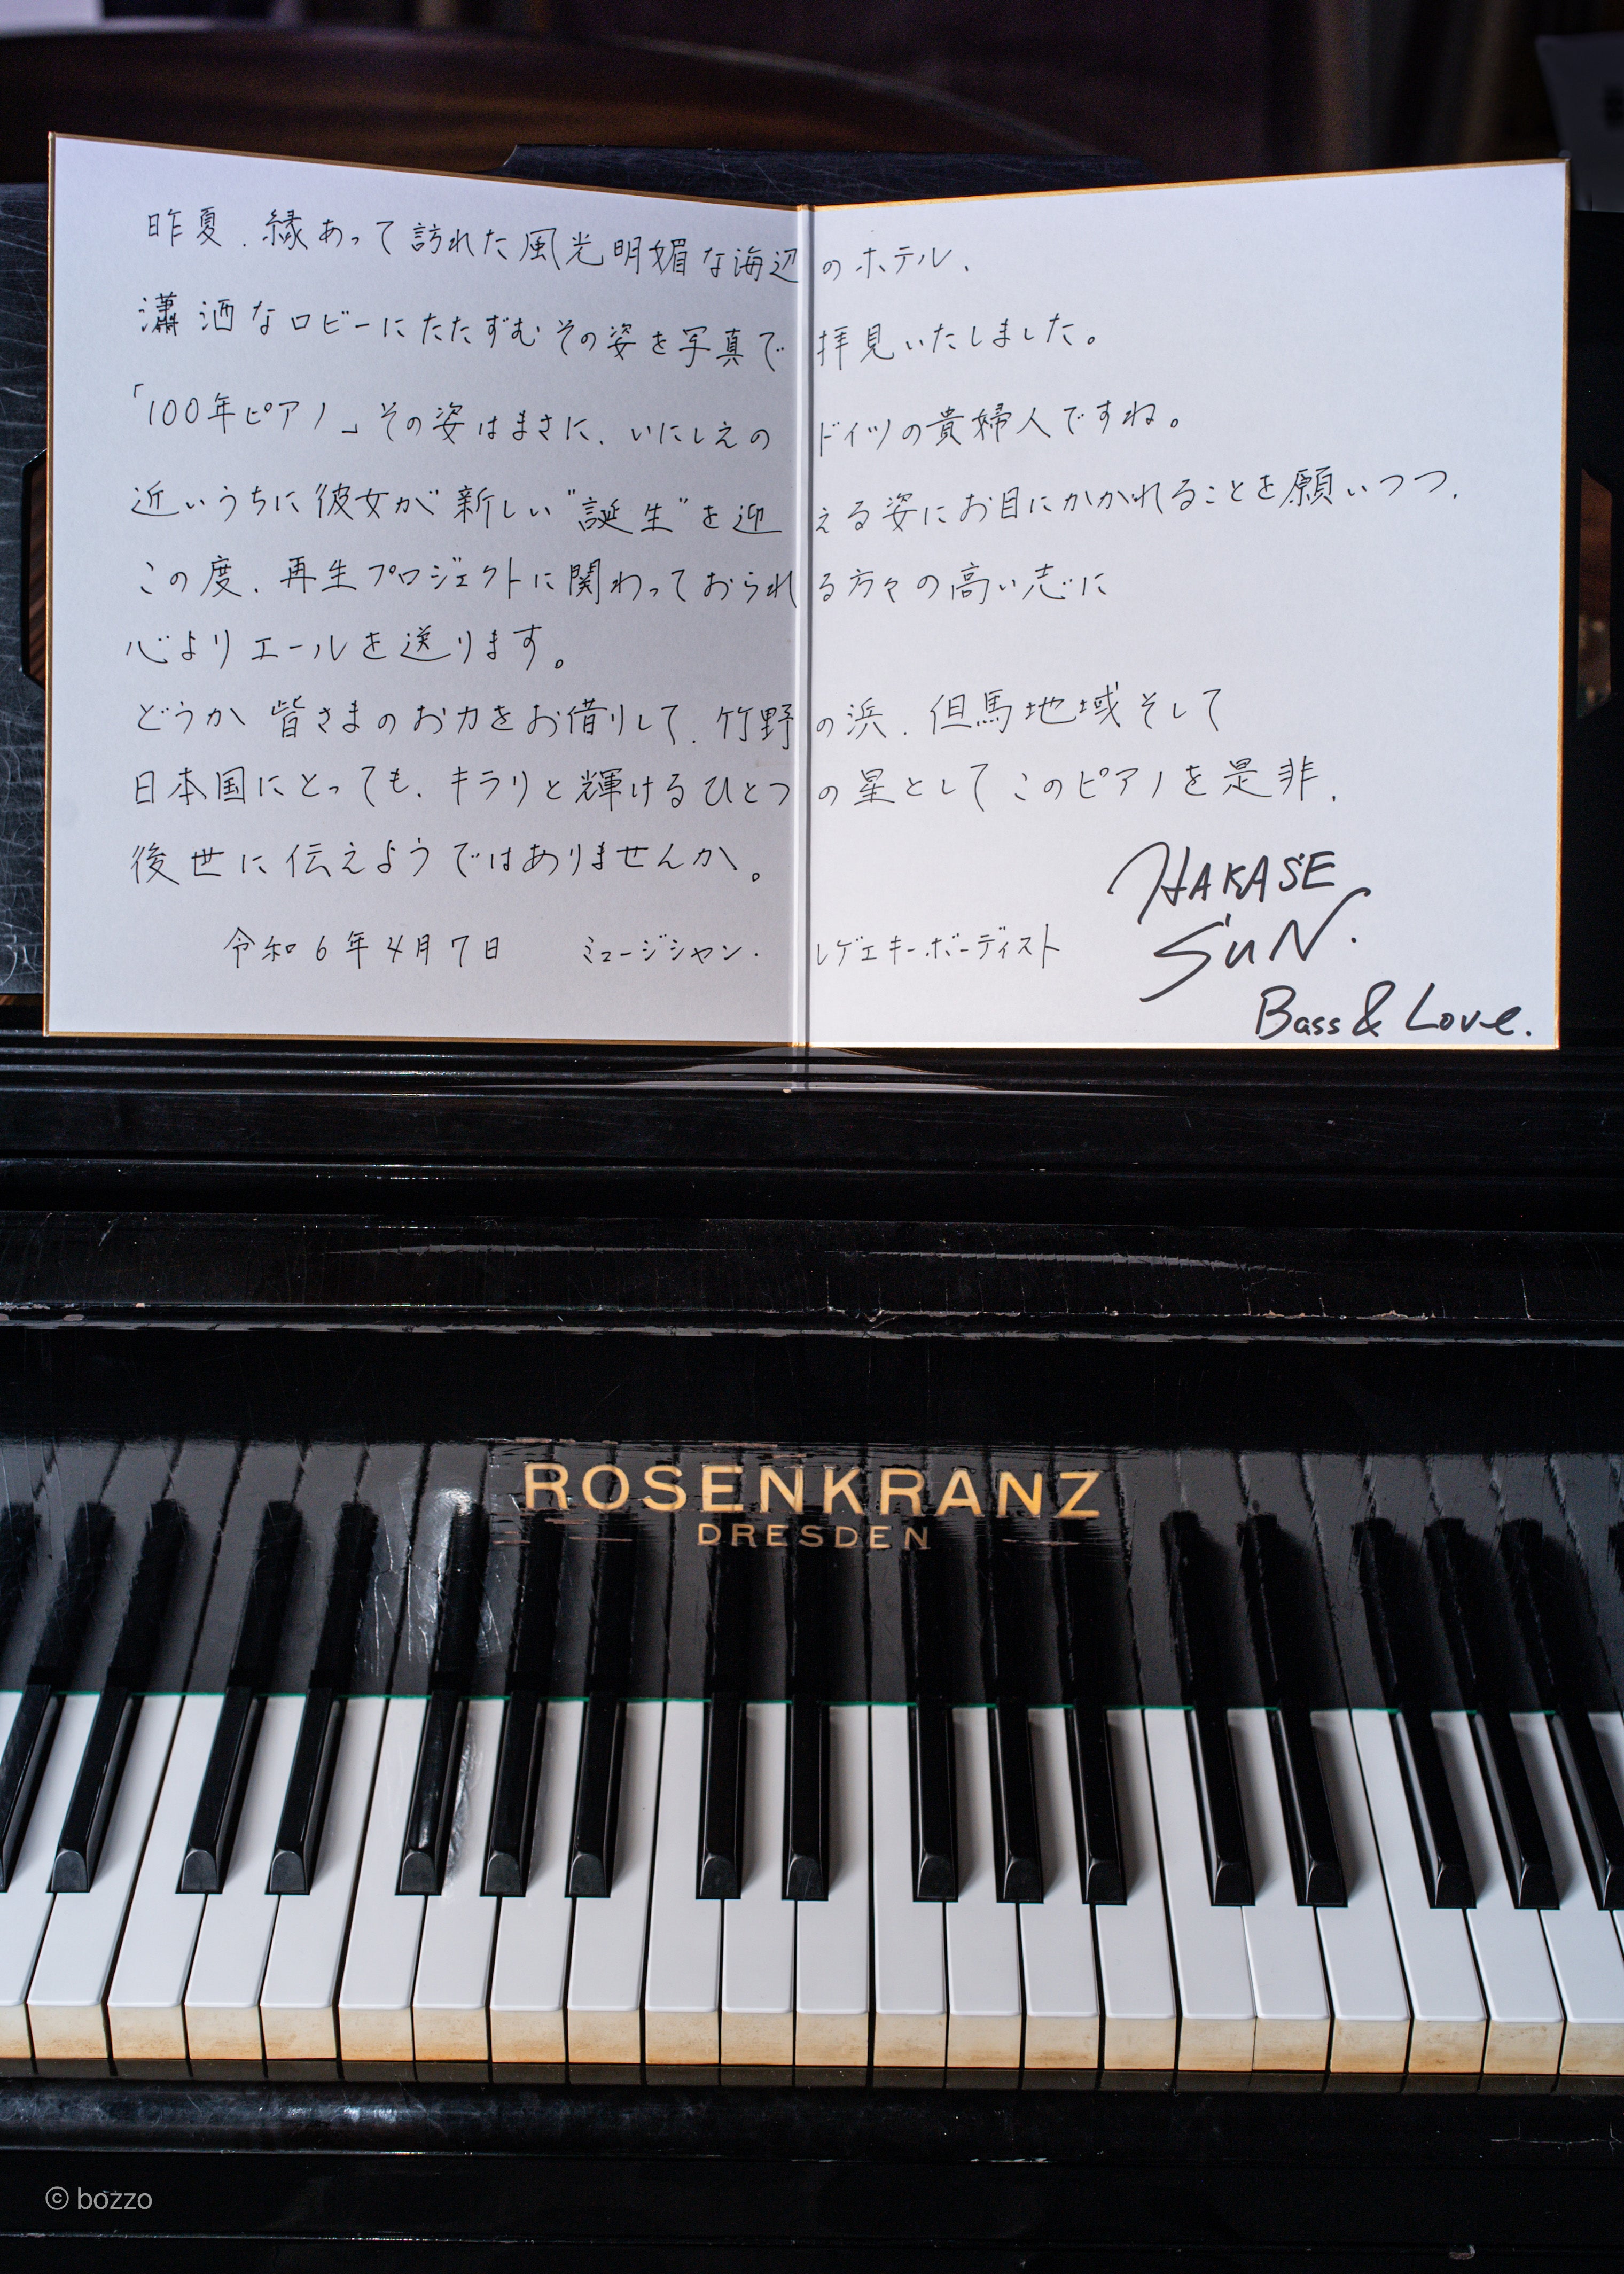 昨夏、縁あって訪れた風光明媚な海辺のホテル、
瀟洒なロビーにたたずむその姿を写真で拝見いたしました。
「100年ピアノ」その姿はまさに、いにしえのドイツの貴婦人ですね。
近いうちに彼女が新しい"誕生"を迎える姿にお目にかかれることを願いつつ、
この度、再生プロジェクトに関わっておられる方々の高い志に
心よりエールを送ります。
どうか皆さまのお力をお借りして、竹野の浜、但馬地域そして
日本国にとっても、キラリと輝けるひとつの星としてこのピアノを是非、
後世に伝えようではありませんか。
令和6年4月7日 ミュージシャン・レゲエキーボーディスト
HAKASE
SUN.
Bass & Love.
ROSENKRANZ
DRESDEN
© bozzo